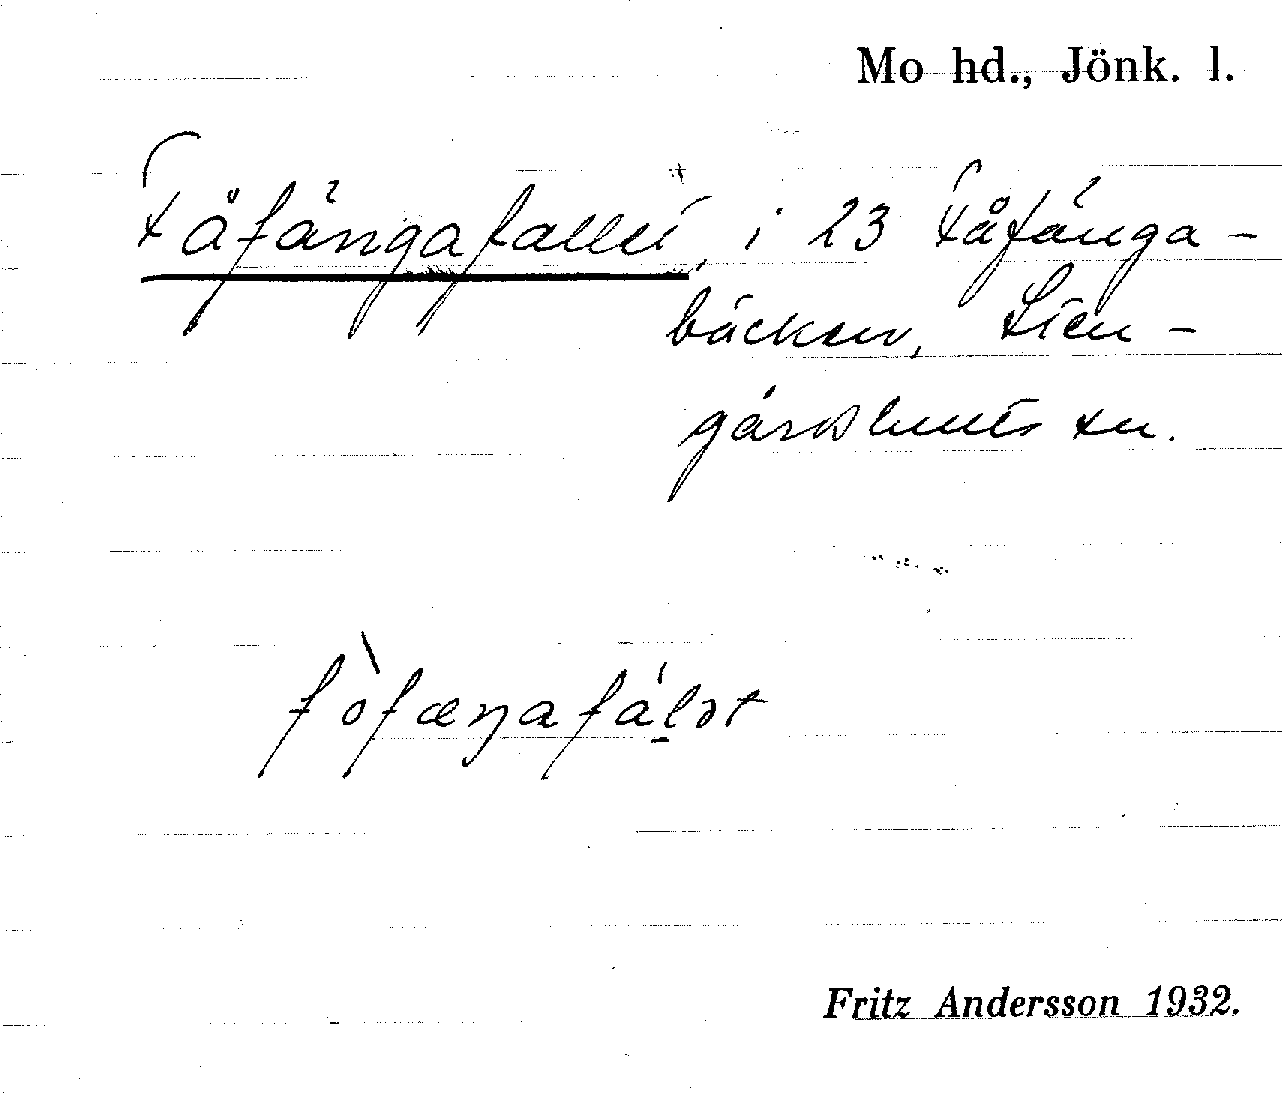 Mo hd., Jönk. l.
Fåfängafallet, i 23 Fåfänga-
bäcken, Lien-
gårdslunds sn.
fòfæŋafáḷət
Fritz Andersson 1932.